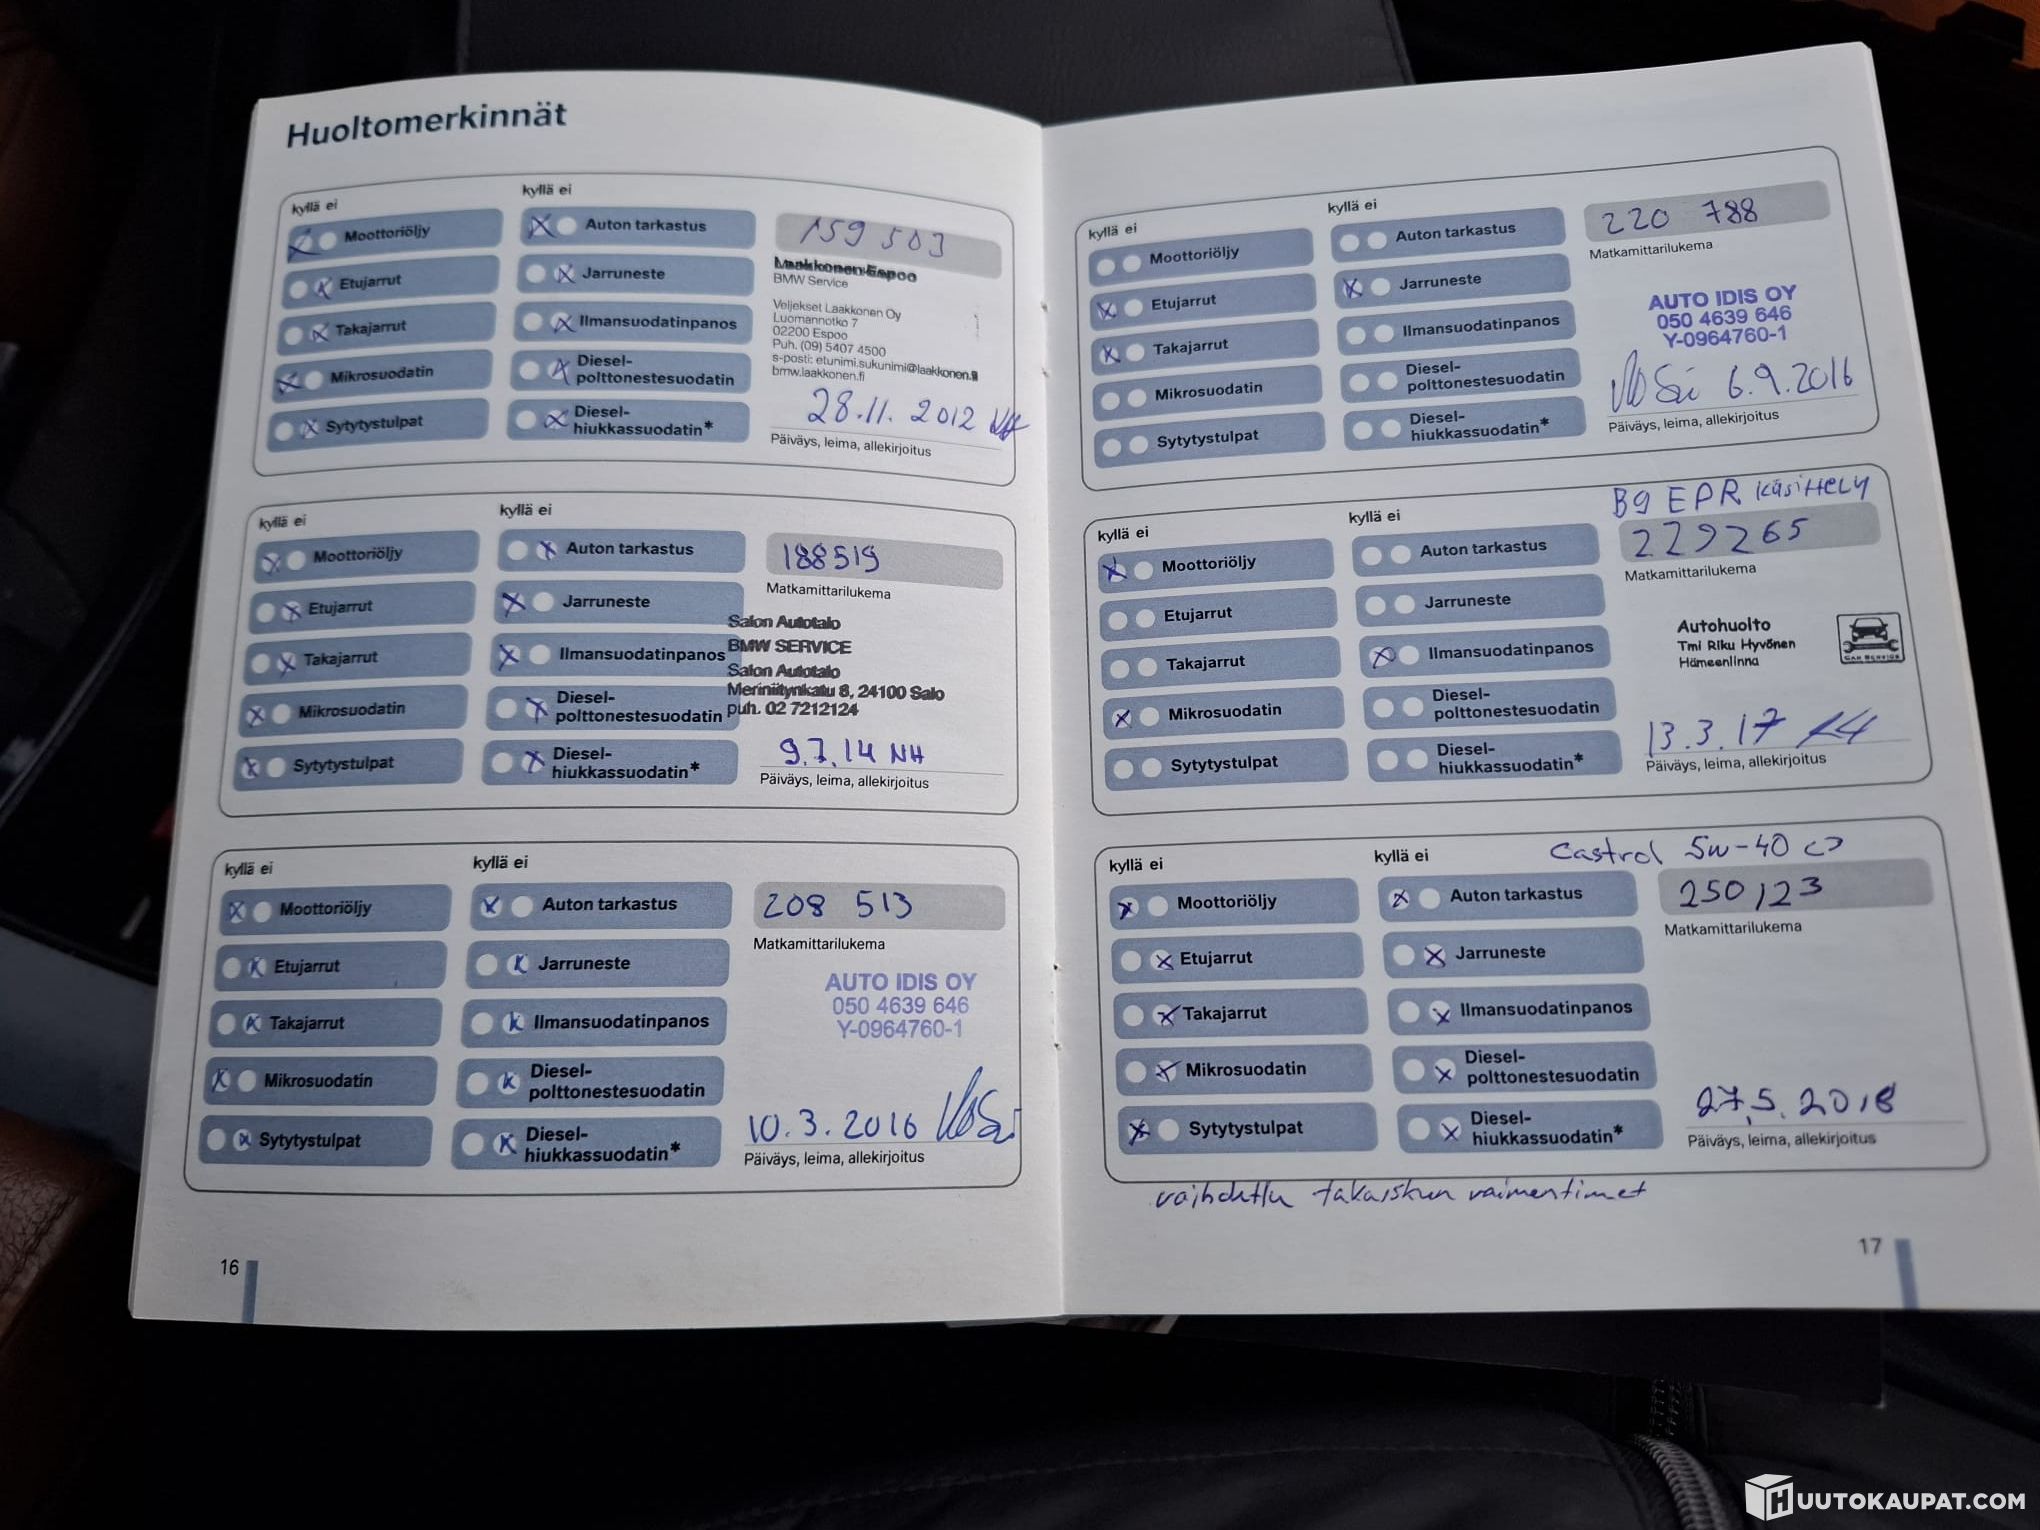 Huoltomerkinnät
kyllä ei
kyllä ei
Moottoriöljy
Auton tarkastus
159 503
Etujarrut
Jarruneste
Laakkonen Espoo
BMW Service
Takajarrut
Ilmansuodatinpanos
Veljekset Laakkonen Oy
Luomannotko 7
02200 Espoo
Puh. (09) 5407 4500
s-posti: etunimi.sukunimi@laakkonen.fi
bmw.laakkonen.fi
Mikrosuodatin
Diesel-
polttonestesuodatin
Sytytystulpat
Diesel-
hiukkassuodatin*
28.11.2012
Päiväys, leima, allekirjoitus
kyllä ei
kyllä ei
Moottoriöljy
Auton tarkastus
188519
Matkamittarilukema
Etujarrut
Jarruneste
Salon Autotalo
BMW SERVICE
Takajarrut
Ilmansuodatinpanos
Salon Autotalo
Meriniitynkatu 8, 24100 Salo
puh. 02 7212124
Mikrosuodatin
Diesel-
polttonestesuodatin
Sytytystulpat
Diesel-
hiukkassuodatin*
9.7.14 NH
Päiväys, leima, allekirjoitus
kyllä ei
kyllä ei
Moottoriöljy
Auton tarkastus
208 513
Matkamittarilukema
Etujarrut
Jarruneste
AUTO IDIS OY
050 4639 646
Y-0964760-1
Takajarrut
Ilmansuodatinpanos
Mikrosuodatin
Diesel-
polttonestesuodatin
Sytytystulpat
Diesel-
hiukkassuodatin*
10.3.2016
Päiväys, leima, allekirjoitus
16
kyllä ei
kyllä ei
Moottoriöljy
Auton tarkastus
220 788
Matkamittarilukema
Etujarrut
Jarruneste
AUTO IDIS OY
050 4639 646
Y-0964760-1
Takajarrut
Ilmansuodatinpanos
Mikrosuodatin
Diesel-
polttonestesuodatin
Sytytystulpat
Diesel-
hiukkassuodatin*
6.9.2016
Päiväys, leima, allekirjoitus
BG EPR käsittely
kyllä ei
kyllä ei
Moottoriöljy
Auton tarkastus
229265
Matkamittarilukema
Etujarrut
Jarruneste
Autohuolto
Tmi Riku Hyvönen
Hämeenlinna
CAR SERVICE
Takajarrut
Ilmansuodatinpanos
Mikrosuodatin
Diesel-
polttonestesuodatin
Sytytystulpat
Diesel-
hiukkassuodatin*
13.3.17
Päiväys, leima, allekirjoitus
Castrol 5w-40
kyllä ei
kyllä ei
Moottoriöljy
Auton tarkastus
250123
Matkamittarilukema
Etujarrut
Jarruneste
Takajarrut
Ilmansuodatinpanos
Mikrosuodatin
Diesel-
polttonestesuodatin
Sytytystulpat
Diesel-
hiukkassuodatin*
27.5.2018
Päiväys, leima, allekirjoitus
vaihdettu takaiskun vaimentimet
17
HUUTOKAUPAT.COM